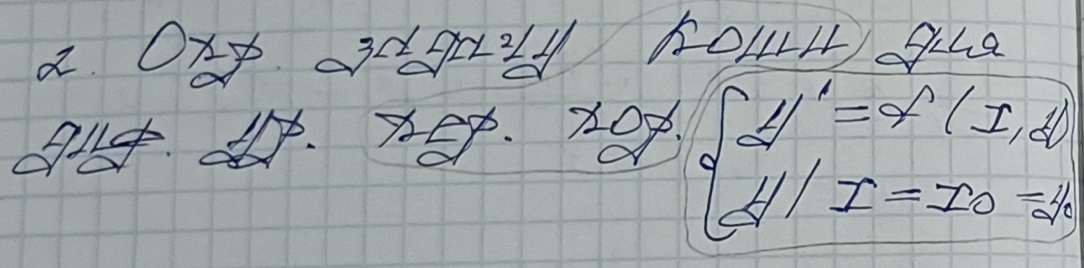 2. Охр. задачу Коши для
диф. ур. хер. хор. { y' = f(x, y)
y/x = x0 = y0